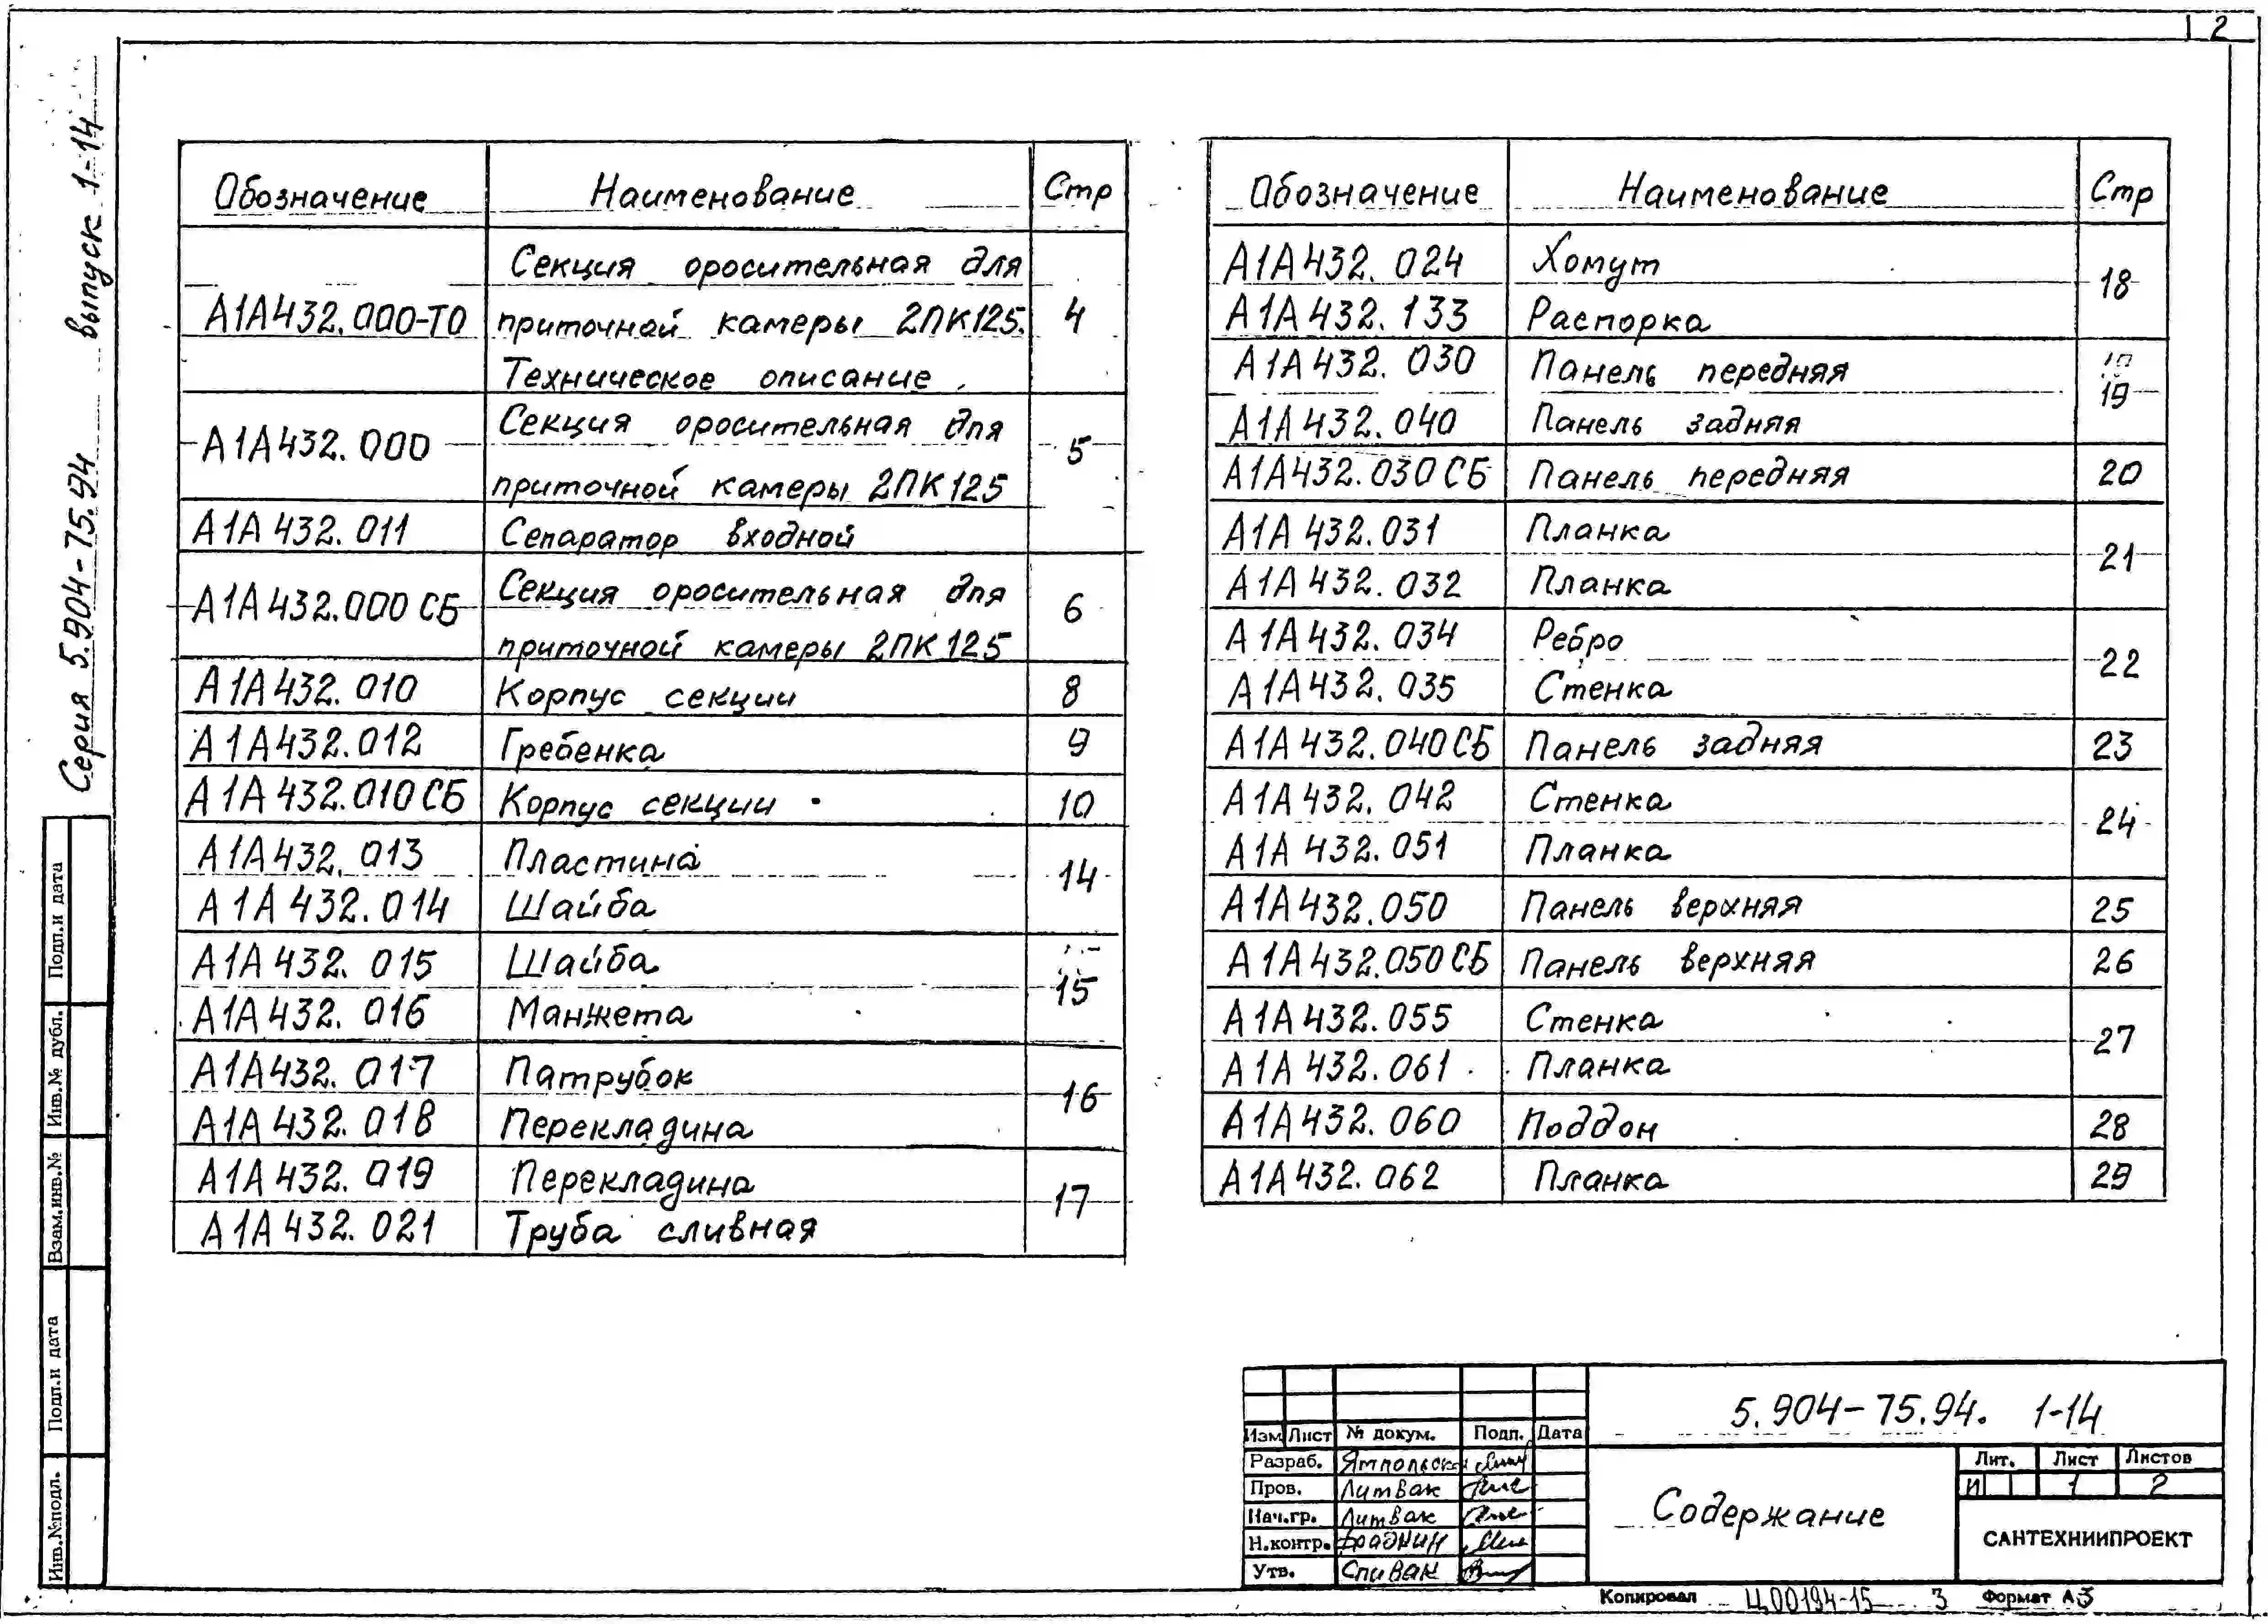 2
Серия 5.904-75.94 выпуск 1-14
Обозначение Наименование Стр
А1А432.000-ТО Секция оросительная для
приточной камеры 2ПК125. 4
Техническое описание
А1А432.000 Секция оросительная для 5
приточной камеры 2ПК125
А1А432.011 Сепаратор входной
А1А432.000 СБ Секция оросительная для 6
приточной камеры 2ПК125
А1А432.010 Корпус секции 8
А1А432.012 Гребенка 9
А1А432.010 СБ Корпус секции 10
А1А432.013 Пластина 14
А1А432.014 Шайба
А1А432.015 Шайба 15
А1А432.016 Манжета
А1А432.017 Патрубок 16
А1А432.018 Перекладина
А1А432.019 Перекладина 17
А1А432.021 Труба сливная
Обозначение Наименование Стр
А1А432.024 Хомут 18
А1А432.133 Распорка
А1А432.030 Панель передняя 19
А1А432.040 Панель задняя
А1А432.030 СБ Панель передняя 20
А1А432.031 Планка 21
А1А432.032 Планка
А1А432.034 Ребро 22
А1А432.035 Стенка
А1А432.040 СБ Панель задняя 23
А1А432.042 Стенка 24
А1А432.051 Планка
А1А432.050 Панель верхняя 25
А1А432.050 СБ Панель верхняя 26
А1А432.055 Стенка 27
А1А432.061 Планка
А1А432.060 Поддон 28
А1А432.062 Планка 29
Подп.и дата
Инв.№ дубл.
Взам.инв.№
Подп.и дата
Инв.№подл.
5.904-75.94. 1-14
Изм Лист № докум. Подп. Дата
Разраб.
Пров. Литвак
Нач.гр. Литвак
Н.контр.
Утв. Спивак
Содержание
Лит. Лист Листов
И 1 2
САНТЕХНИИПРОЕКТ
Копировал Ц00194-15 3 Формат А3